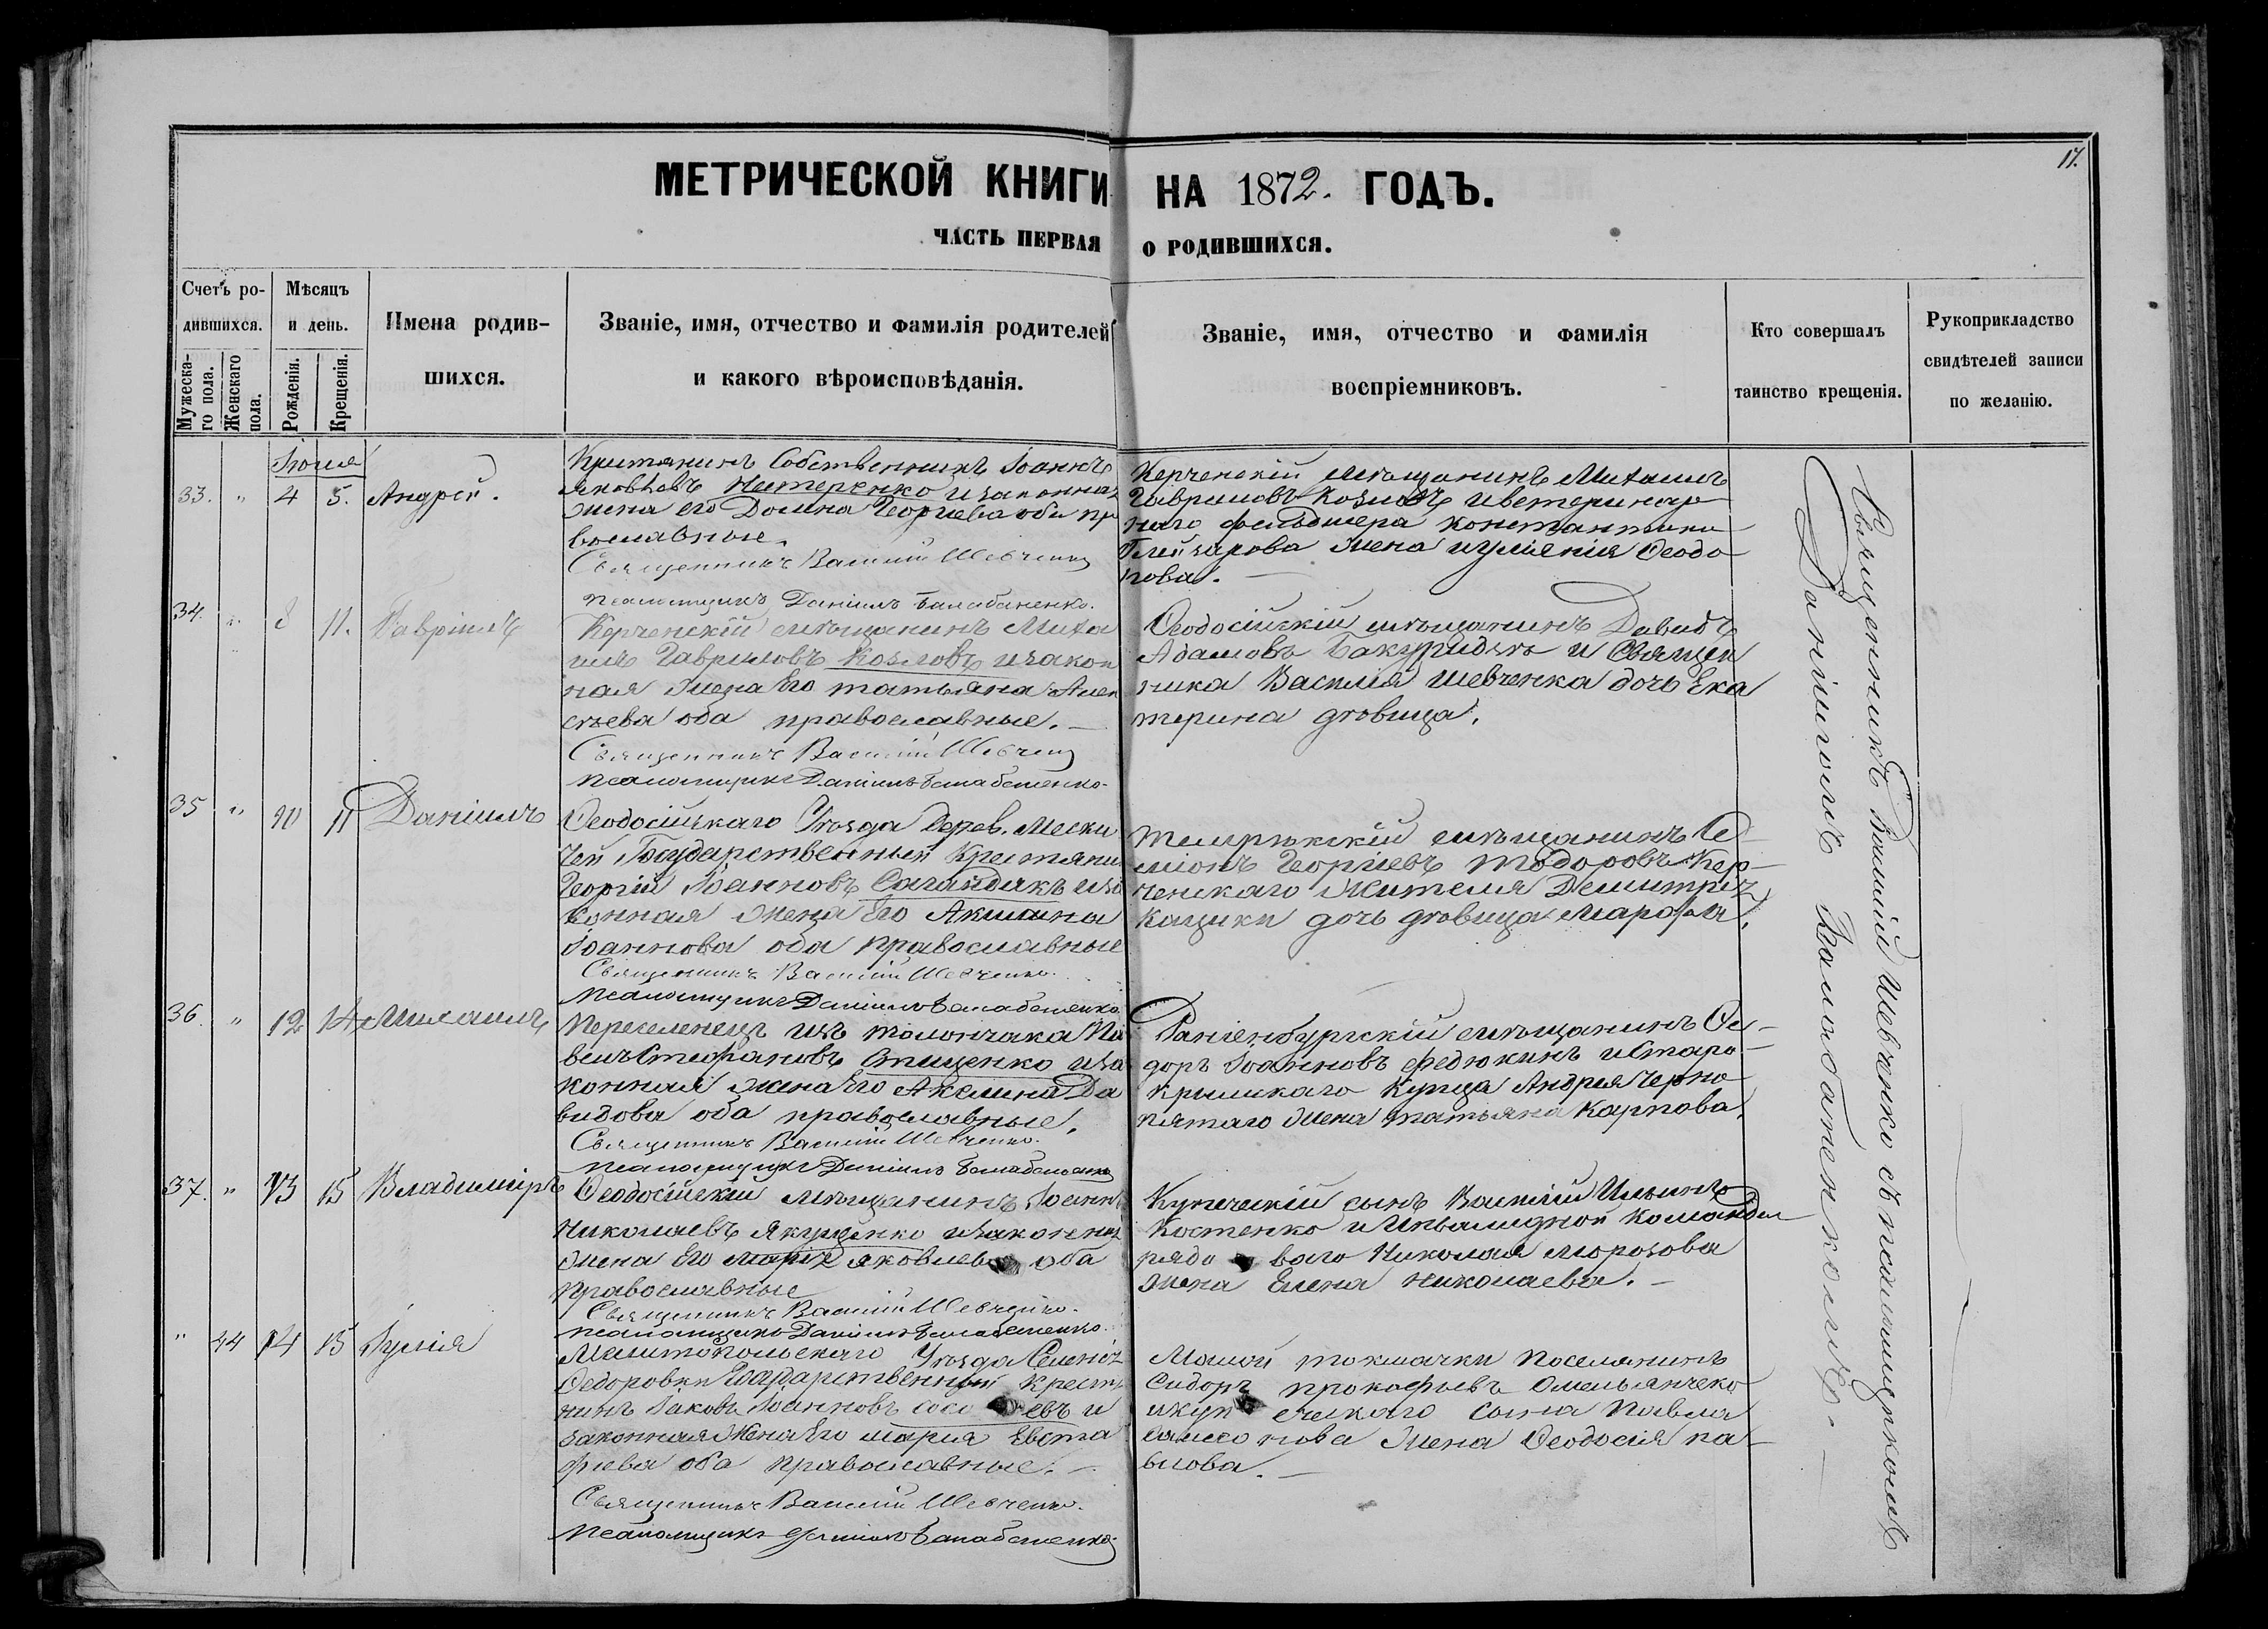 17.
МЕТРИЧЕСКОЙ КНИГИ НА 1872. ГОДЪ.
ЧАСТЬ ПЕРВАЯ О РОДИВШИХСЯ.
Счетъ ро-
дившихся.
Мужеска-
го пола.
Женскаго
пола.
Мѣсяцъ
и день.
Рожденія.
Крещенія.
Имена родив-
шихся.
Званіе, имя, отчество и фамилія родителей
и какого вѣроисповѣданія.
Званіе, имя, отчество и фамилія
воспріемниковъ.
Кто совершалъ
таинство крещенія.
Рукоприкладство
свидѣтелей записи
по желанію.
33. " 4 5. Андрей.
Собственникъ Іоаннъ
Яковлевъ Нетеренко и законная
жена его Домна Георгіева оба пр
вославные.
Священникъ Василій Шевченко
Псаломщикъ Даніилъ Балабаненко.
Керченскій мѣщанинъ Михаилъ
Гавриловъ Козловъ и ветеринар
наго фельдшера Константина
жена Іуліанія Ѳеодо
рова.
34. " 8 11. Гавріилъ
Керченскій мѣщанинъ Миха
илъ Гавриловъ Козловъ и закон
ная жена Его Татьяна Алек
сѣева оба православные.
Священникъ Василій Шевченко
Псаломщикъ Даніилъ Балабаненко.
Ѳеодосійскій мѣщанинъ Давидъ
Адамовъ и Священ
ника Василія Шевченка дочь Ека
терина дѣвица.
35 " 10 11 Даніилъ
Ѳеодосійскаго Уѣзда дерев.
Государственный Крестянин
Георгій Іоанновъ Сагайдакъ и за
конная жена Его Акилина
Іоаннова оба православные
Священникъ Василій Шевченко.
Псаломщикъ Даніилъ Балабаненко.
Темрюкскій мѣщанинъ Се
міонъ Георгіевъ Тодоровъ Кер-
ченскаго Жителя Димитрія
Кацики дочь дѣвица Марѳа.
36. " 12 14 Михаилъ
Переселенецъ изъ Па
велъ Стефановъ Стиценко и за
конная жена Его Акелина Да
видова оба православные.
Священникъ Василій Шевченко.
Псаломщикъ Даніилъ Балабаненко
Раніенбургскій мѣщанинъ Ѳе-
доръ Іоанновъ Федюкинъ и Старо-
крымскаго Купца Андрея Черно
пятаго жена Татьяна Карпова.
37. " 13 15 Владиміръ
Ѳеодосійскій мѣщанинъ Іоаннъ
Николаевъ Якущенко и законная
жена Его Марія Яковлева оба
православные
Священникъ Василій Шевченко.
Псаломщикъ Даніилъ Балабаненко.
Купеческій сынъ Василій Ильинъ
Костенко и Инвалидной Команды
рядоваго Николая Морозова
жена Елена Николаева.
" 44 14 15 Іулія
Мелитопольскаго Уѣзда Селенія
Ѳедоровки Государственный крестя
нинъ Іаковъ Іоанновъ и
законная жена Его Марія Евста
фіева оба православные.
Священникъ Василій Шевченко.
Псаломщикъ Даніилъ Балабаненко.
Малой Токмачки поселянинъ
Сидоръ Прокофьевъ Омельянчеко
и купеческаго сына Павла
жена Ѳеодосія па-
влова.
Священникъ Василій Шевченко съ псаломщикомъ
Даніиломъ Балабаненкомъ.